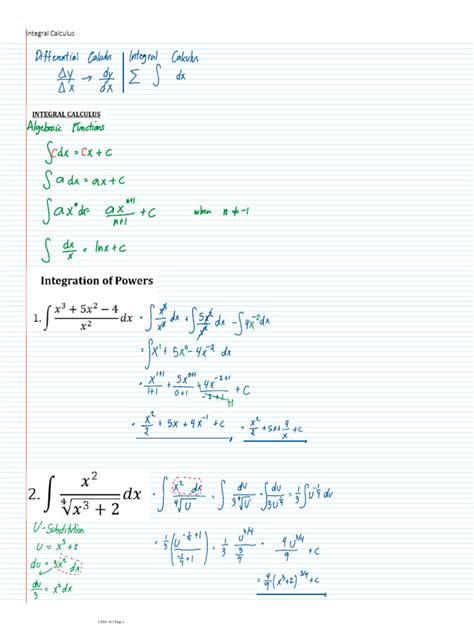 Integral Calculus
Differential Calculus | Integral Calculus
Δy/Δx → dy/dx | Σ ∫ dx
INTEGRAL CALCULUS
Algebraic Functions
∫cdx = cx + c
∫a dx = ax + c
∫ax^n dx = ax^(n+1)/(n+1) + c when n ≠ -1
∫ dx/x = lnx + c
Integration of Powers
1. ∫ (x³ + 5x² − 4)/x² dx = ∫ x³/x² dx + ∫ 5x²/x² dx − ∫ 4x^-2 dx
= ∫x¹ + 5x⁰ − 4x^-2 dx
= x^(1+1)/(1+1) + 5x^(0+1)/(0+1) + 4x^(-2+1)/(-2+1) + c
= x²/2 + 5x + 4x^-1 + c = x²/2 + 5x + 4/x + c
2. ∫ x²/⁴√(x³ + 2) dx = ∫ x² dx/⁴√u = ∫ du/3⁴√u = ∫ du/3u^(1/4) = 1/3 ∫ u^(-1/4) du
U-Substitution
u = x³ + 2
du = 3x² dx
du/3 = x² dx
= 1/3 (u^(-1/4+1)/(-1/4+1)) = 1/3 u^(3/4)/(3/4) = 4u^(3/4)/9 + c
= 4/9 (x³+2)^(3/4) + c